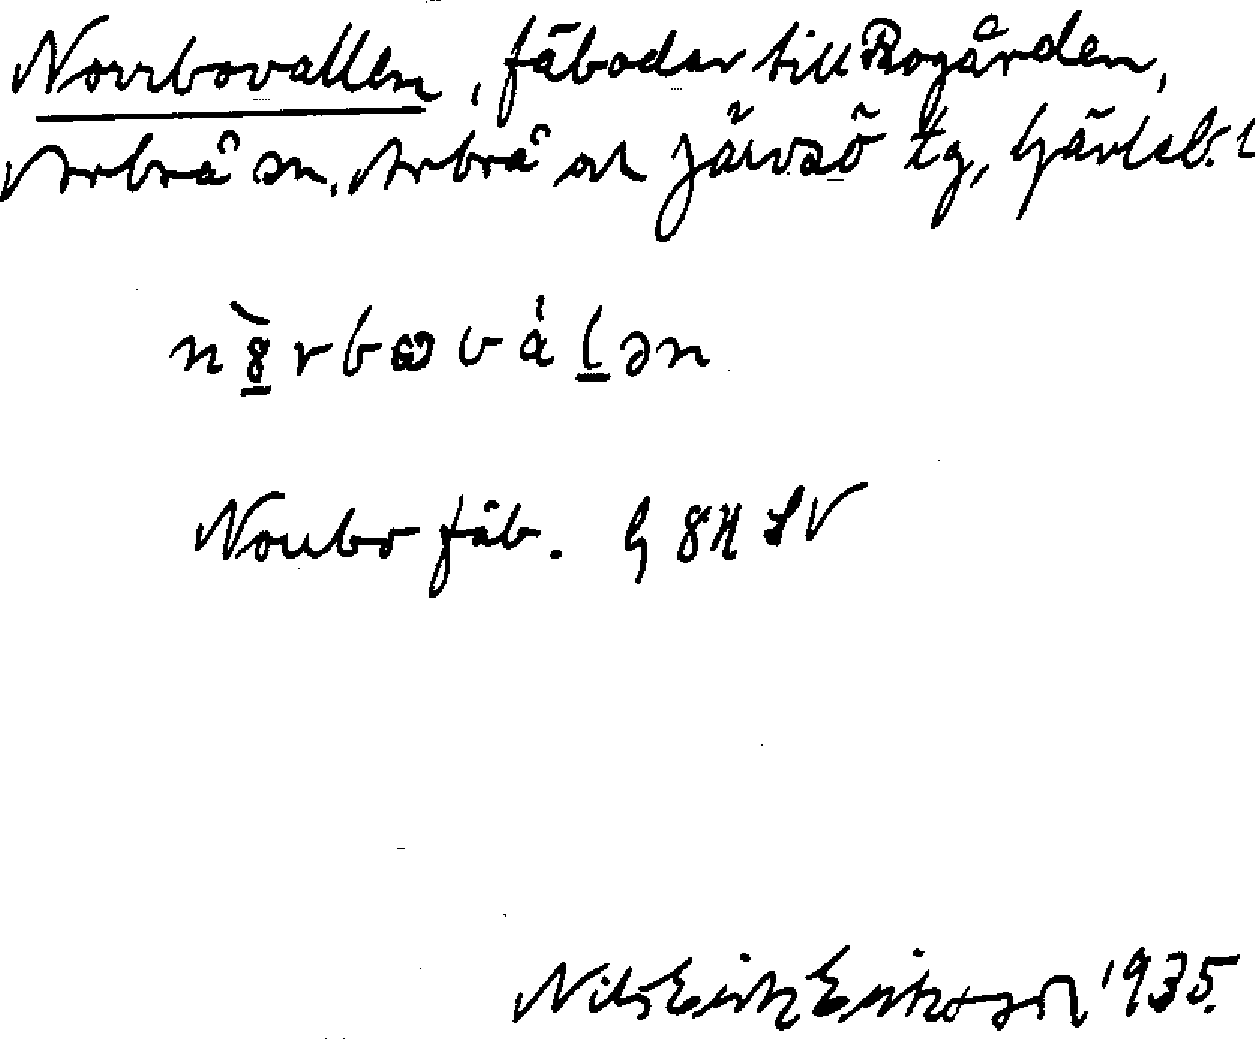 Norrbovallen, fäbodar till Rogården,
Arbrå sn, Arbrå och Järvsö tg, Gävleb. l
Norrbo fäb. G 8H SV
Nils Erik Eriksson 1935.